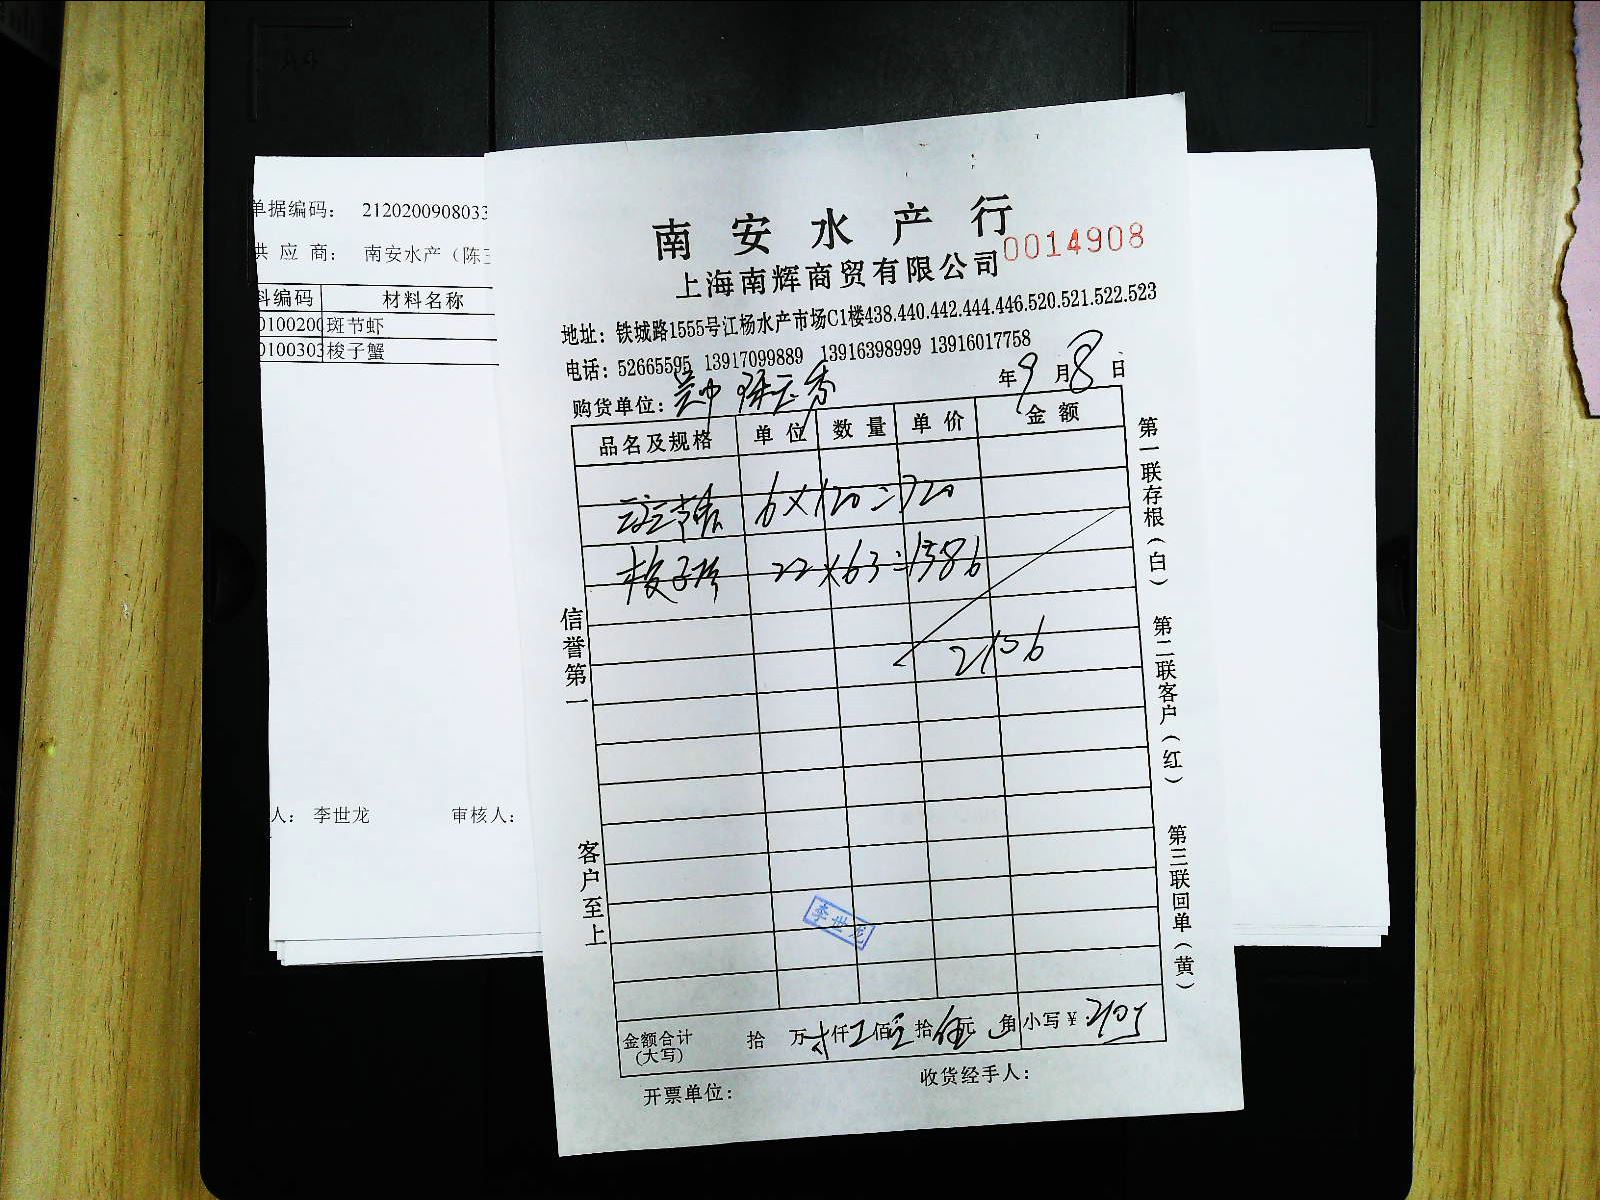 单据编码： 2120200908033
供 应 商： 南安水产（陈
料编码 材料名称
0100200 斑节虾
0100303 梭子蟹
人： 李世龙 审核人：
南安水产行
0014908
上海南辉商贸有限公司
地址：铁城路1555号江杨水产市场C1楼438.440.442.444.446.520.521.522.523
电话：52665595 13917099889 13916398999 13916017758
年9月8日
购货单位：
品名及规格 单位 数量 单价 金额
斑节虾 6×120=720
梭子蟹 22×63=1386
2106
李世龙
金额合计（大写） 拾 万 仟 佰 拾 元 角 小写￥2105
开票单位： 收货经手人：
信誉第一 客户至上
第一联存根（白） 第二联客户（红） 第三联回单（黄）